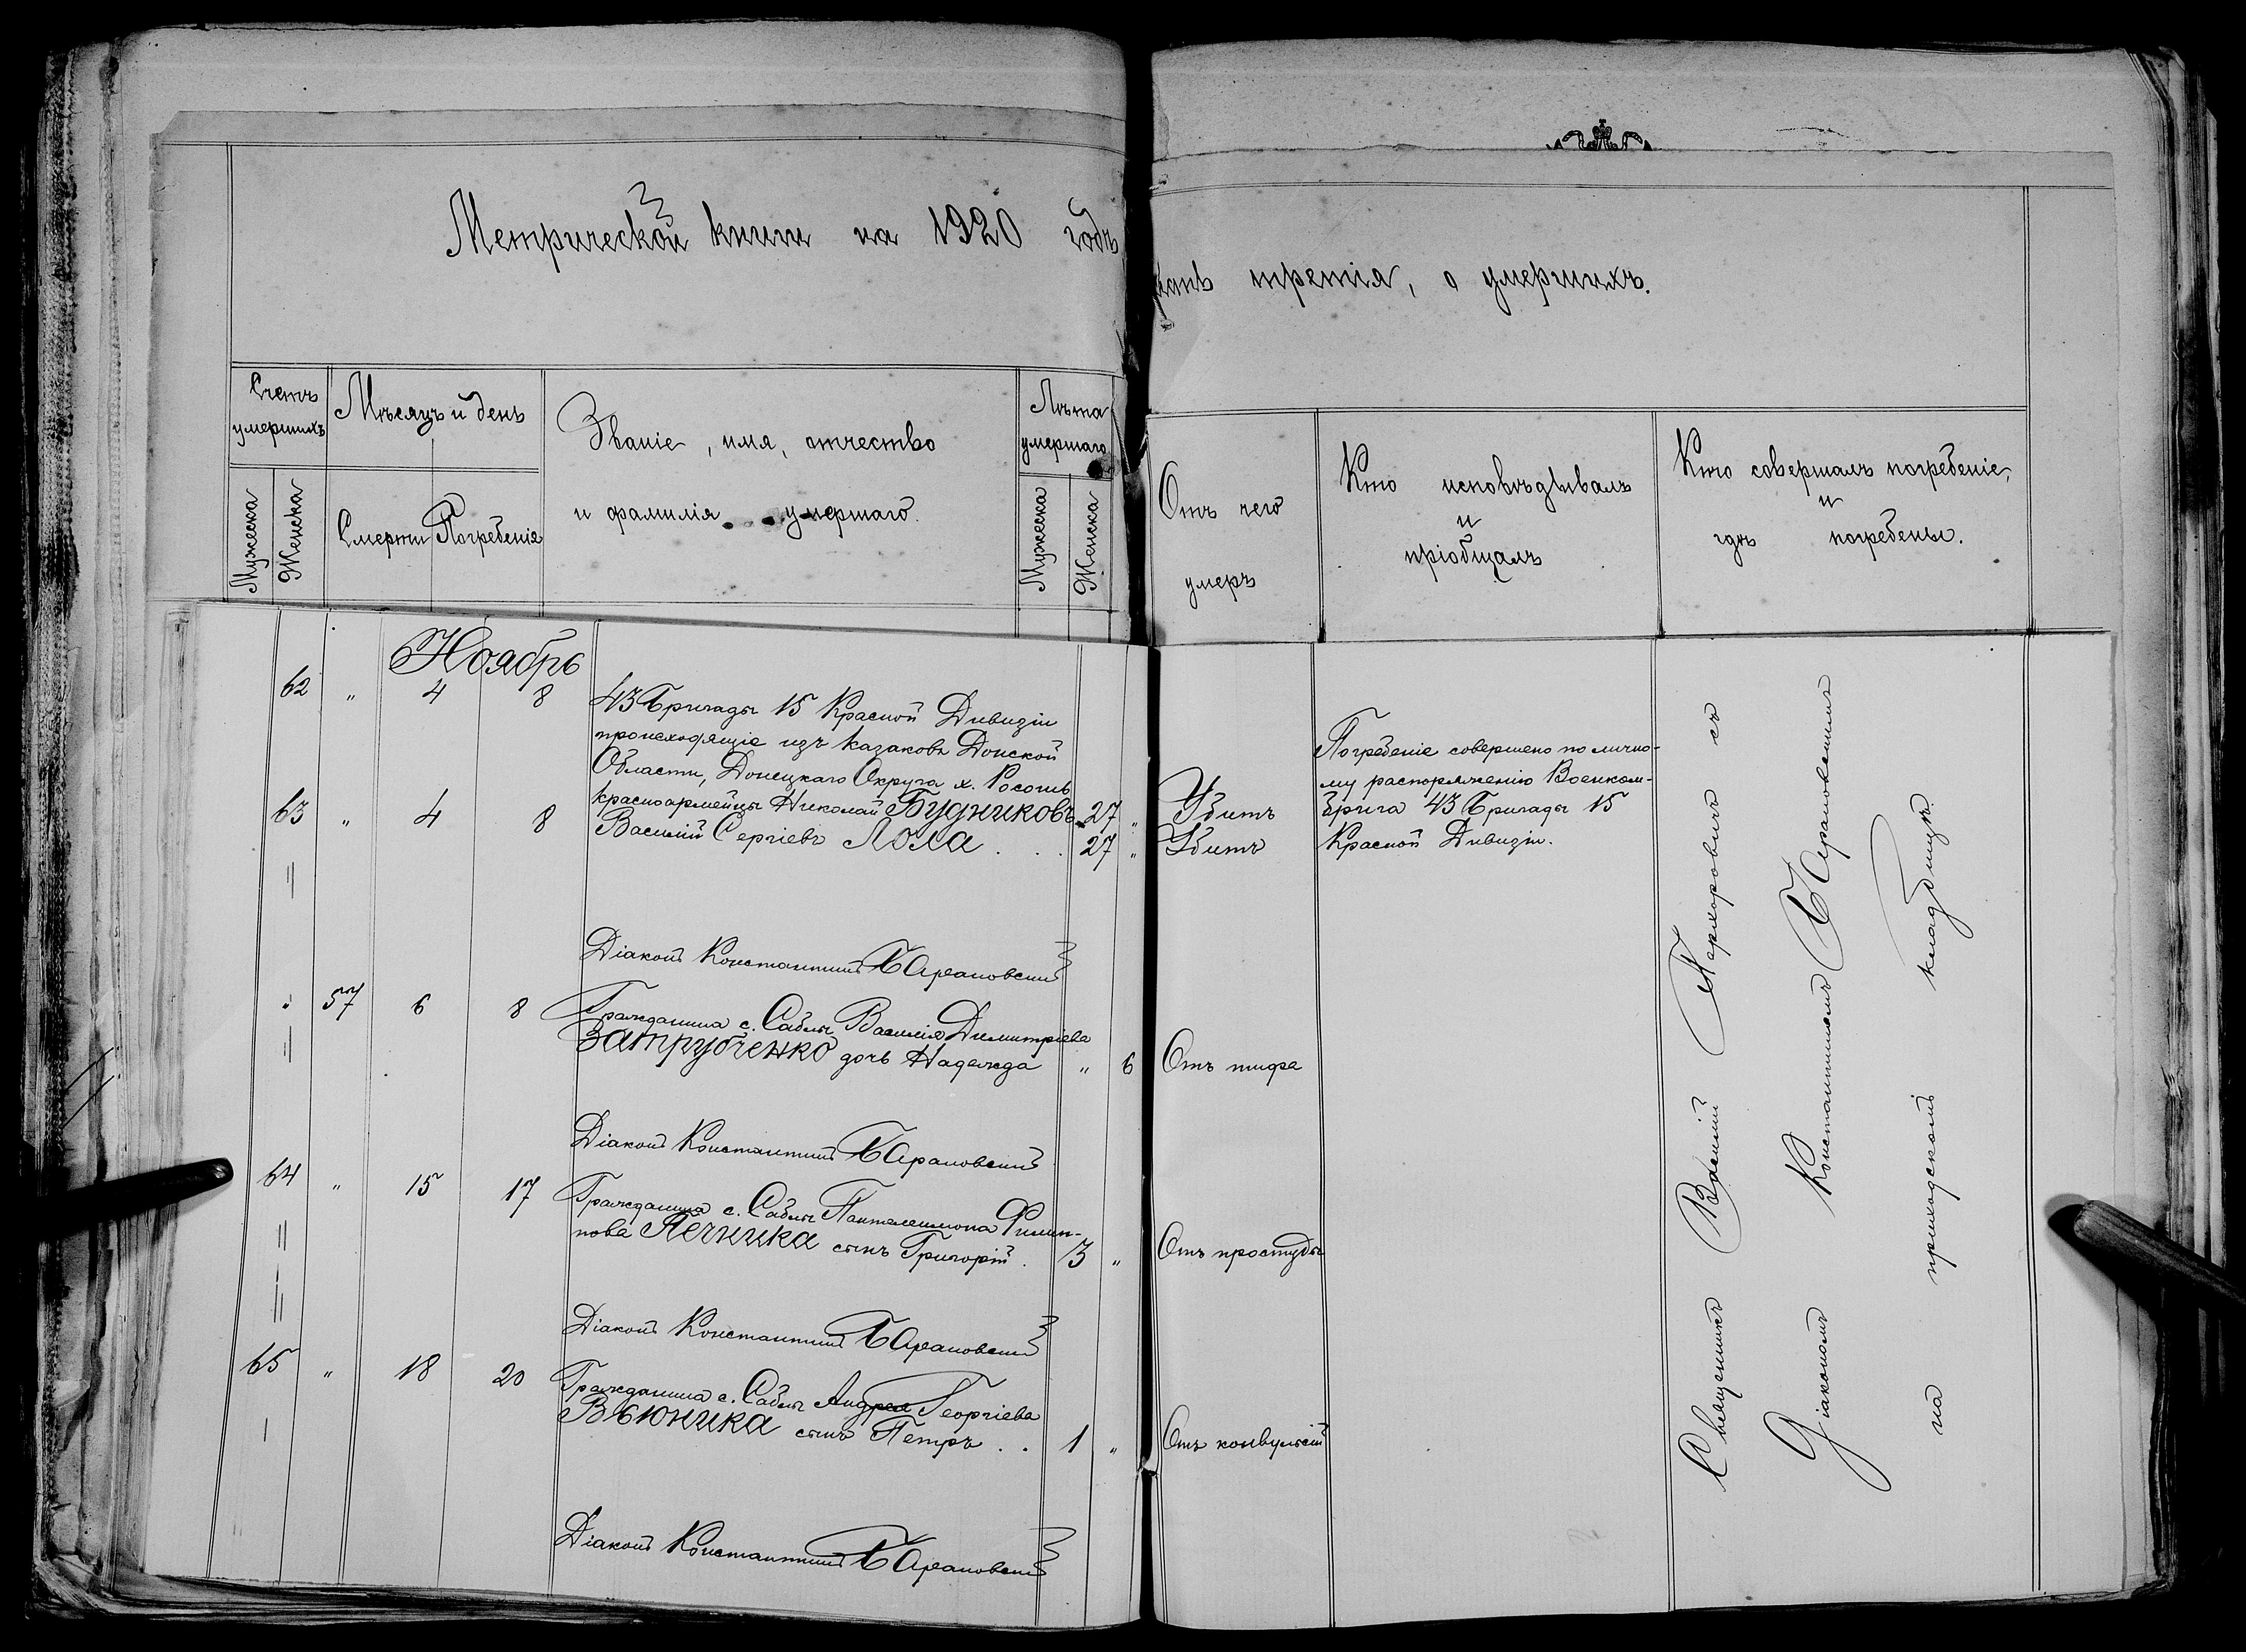 Метрической книги на 1920 годъ
часть третія, о умершихъ.
Счетъ умершихъ
Мужеска
Женска
Мѣсяцъ и день
Смерти
Погребенія
Званіе, имя, отчество
и фамилія умершаго.
Лѣта умершаго
Мужеска
Женска
Отъ чего
умеръ
Кто исповѣдывалъ
и
пріобщалъ
Кто совершалъ погребеніе,
и
гдѣ погребены.
Ноябрь
62 " 4 8 43 Бригады 15 Красной Дивизіи
происходящіе изъ казаковъ Донской
Области, Донецкаго Округа х. Россошь
63 " 4 8 красноармейцы Николай Будниковъ 27 " Убитъ
Василій Сергіевъ Лола . . . 27 " Убитъ
Погребеніе совершено по лично-
му распоряженію Военком-
брига 43 Бригады 15
Красной Дивизіи.
Діаконъ Константинъ Барановскій
" 57 6 8 Гражданина с. Саблы Василія Димитріева
Затрубченко дочь Надежда " 6 Отъ тифа
Діаконъ Константинъ Барановскій
64 " 15 17 Гражданина с. Саблы Пантелеимона Филип-
пова Ячника сынъ Григорій . 3 " Отъ простуды
Діаконъ Константинъ Барановскій
65 " 18 20 Гражданина с. Саблы Андрея Георгіева
Вьюника сынъ Петръ . . 1 " Отъ конвульсій
Діаконъ Константинъ Барановскій
Священникъ Василій Парховичъ съ
Діакономъ Константиномъ Барановскимъ
на приходскомъ кладбищѣ.